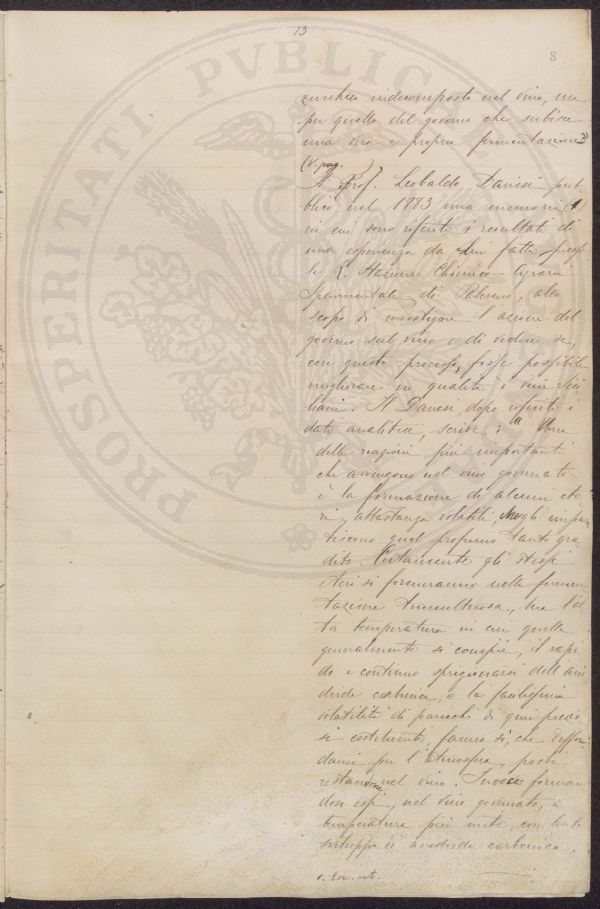 13
8
zucchero indecomposto nel vino, ma
per quello del governo che subisce
una vera e propria fermentazione"
(V. pag. )
Il Prof. Leobaldo Danesi pub-
blicò nel 1893 una memoria (1)
in cui sono riferiti i resultati di
una esperienza da lui fatta presso
la R. Stazione Chimico-Agraria
Sperimentale di Palermo, allo
scopo di investigare l'azione del
governo sul vino e di vedere se,
con questo processo, fosse possibile
migliorare in qualità i vini Sici-
liani. Il Danesi, dopo riferiti i
dati analitici, scrive: "Una
delle reazioni più importanti
che avvengono nel vino governato
è la formazione di alcuni ete-
ri, abbastanza volatili, che gli impar-
tiscono quel profumo tanto gra-
dito. Certamente gli stessi
eteri si formeranno nella fermen-
tazione tumultuosa, ma l'al-
ta temperatura in cui quella
generalmente si compie, il rapi-
do e continuo sprigionarsi dell'ani-
dride carbonica, e la facilissima
volatilità di parecchi di quei preziosi
costituenti, fanno sì, che diffon-
dansi per l'atmosfera, poche
restandone nel vino. Invece forman-
dosi essi, nel vino governato, a
temperatura più mite, con lento
sviluppo di anidride carbonica,
1. Loc. cit.
PROSPERITATI PVBLICAE